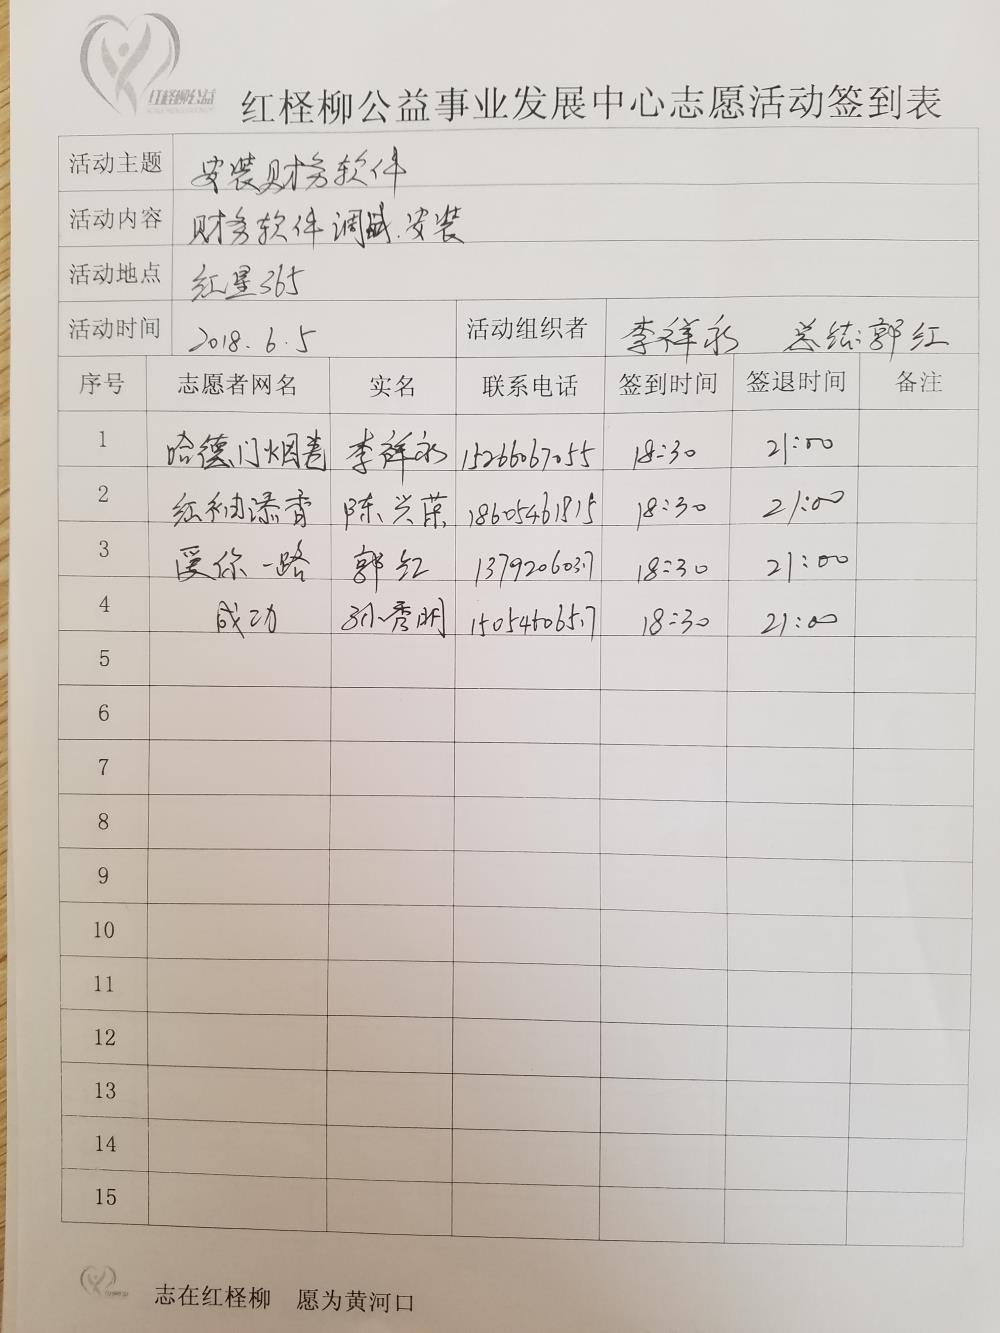 红柽柳公益
红柽柳公益事业发展中心志愿活动签到表
活动主题 安装财务软件
活动内容 财务软件调试.安装
活动地点 红星365
活动时间 2018.6.5 活动组织者 李祥永 总结:郭红
序号 志愿者网名 实名 联系电话 签到时间 签退时间 备注
1 哈德门烟青 李祥永 15266067055 18:30 21:00
2 红袖添香 陈兴荣 18605461815 18:30 21:00
3 爱你一路 郭红 13792060317 18:30 21:00
4 成功 孙秀明 15054606517 18:30 21:00
5
6
7
8
9
10
11
12
13
14
15
志在红柽柳 愿为黄河口